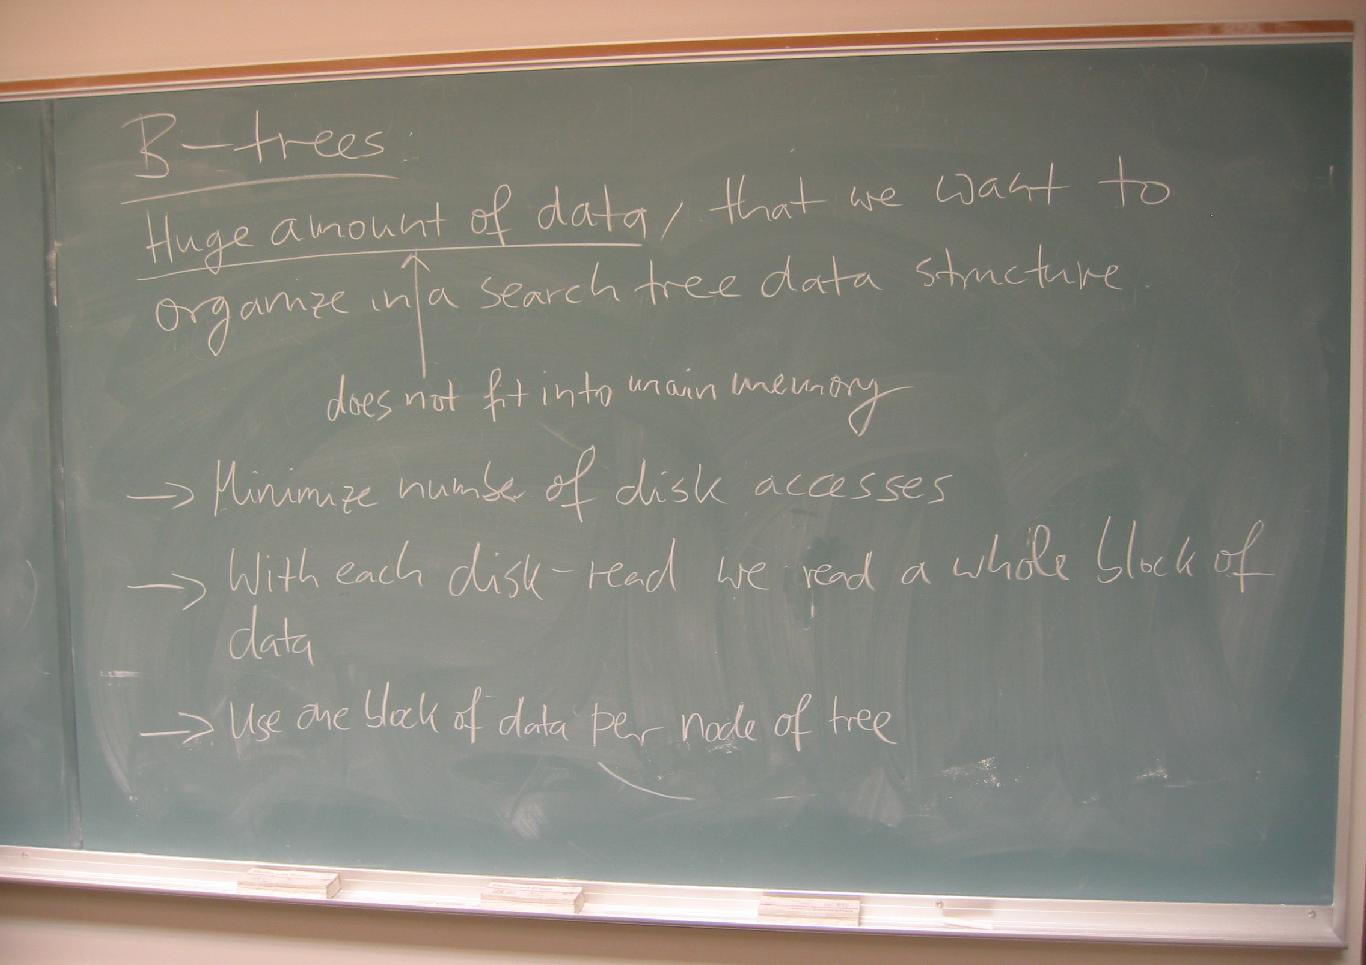 B-trees:
Huge amount of data, that we want to
organize in a search tree data structure.
does not fit into main memory
→ Minimize number of disk accesses
→ With each disk-read we read a whole block of
data
→ Use one block of data per node of tree